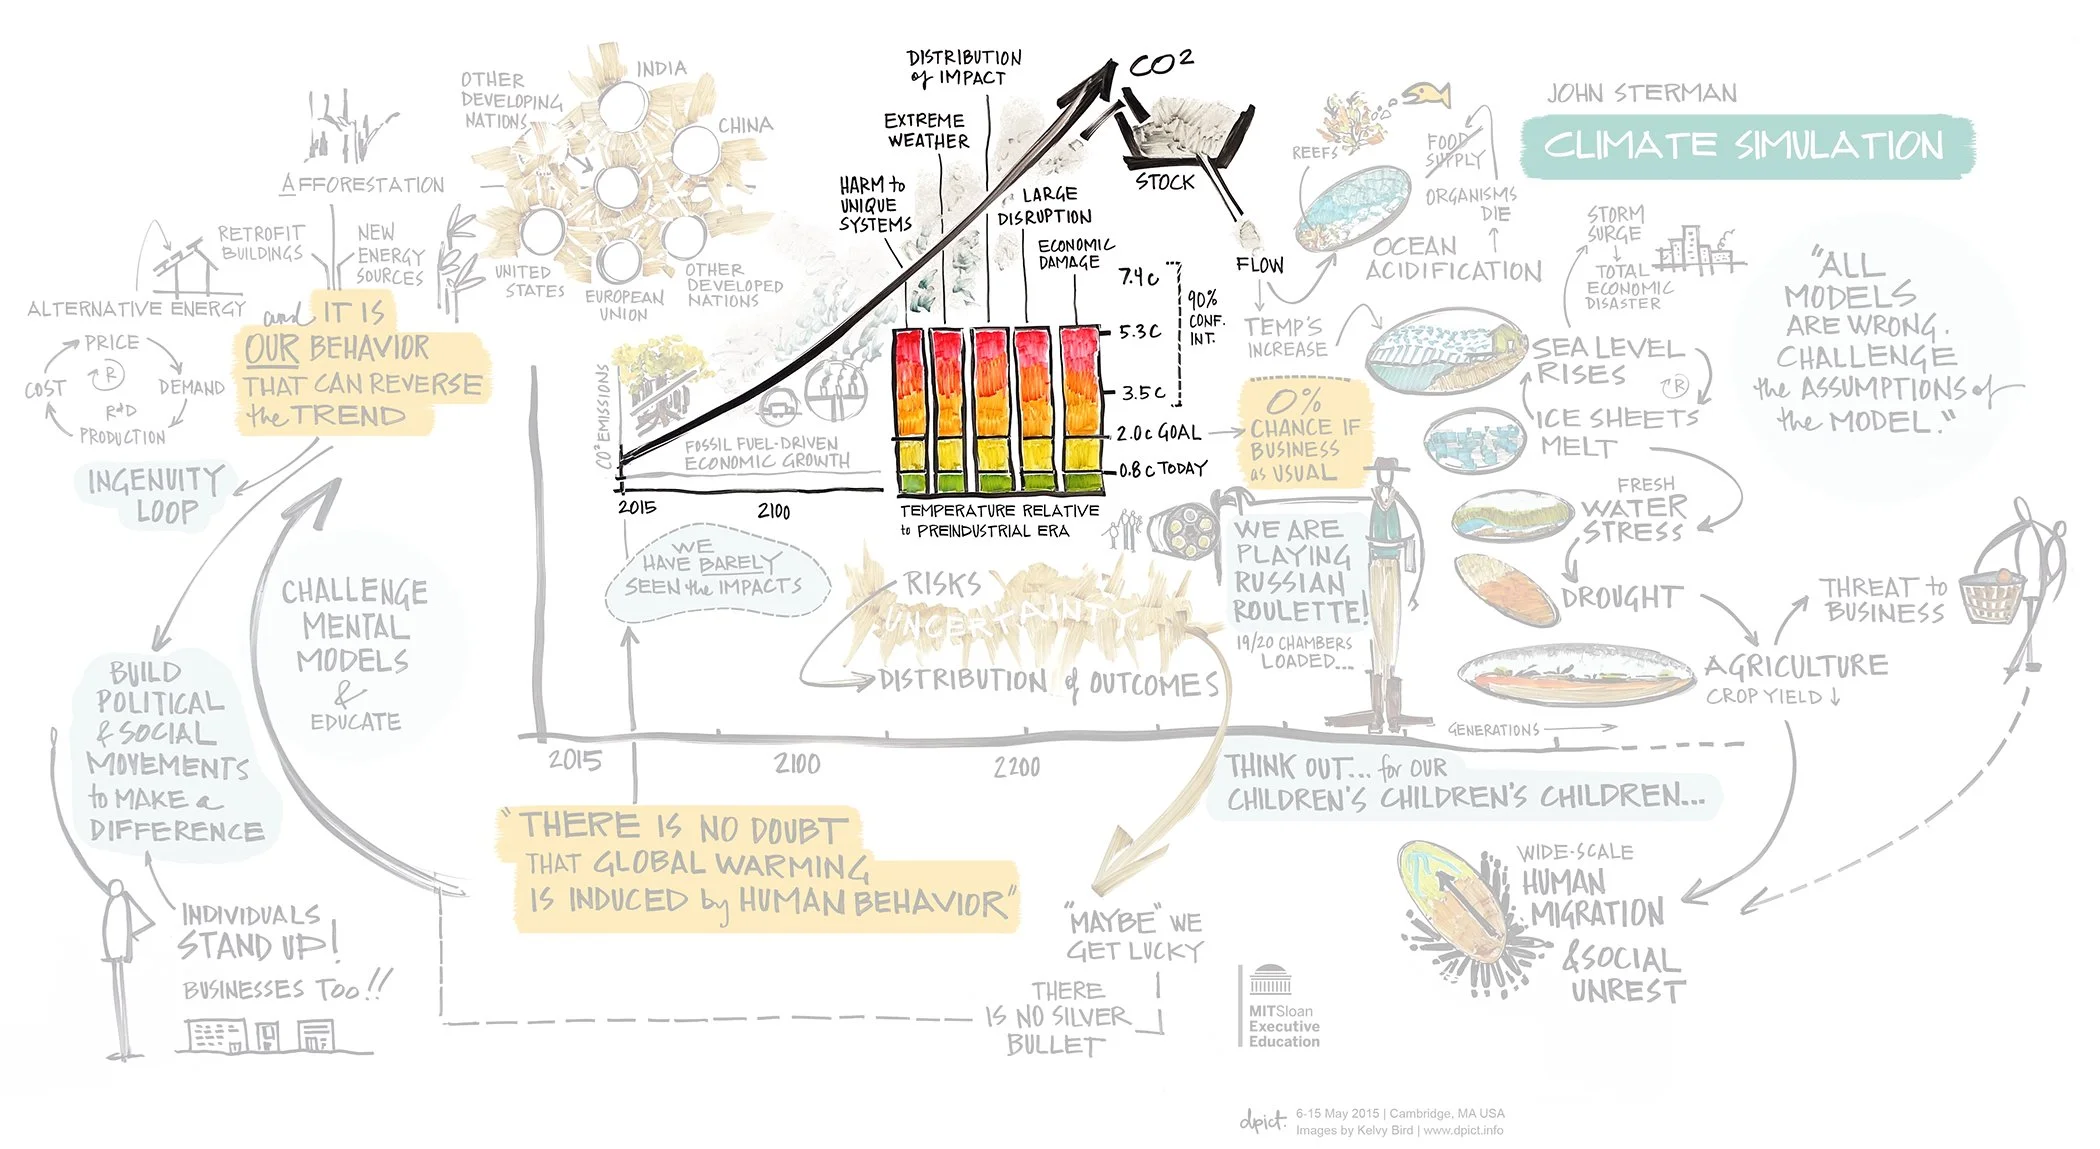 JOHN STERMAN
CLIMATE SIMULATION
OTHER
DEVELOPING
NATIONS
INDIA
CHINA
UNITED
STATES
EUROPEAN
UNION
OTHER
DEVELOPED
NATIONS
AFFORESTATION
RETROFIT
BUILDINGS
NEW
ENERGY
SOURCES
ALTERNATIVE ENERGY
PRICE
COST
R
DEMAND
R&D
PRODUCTION
and IT IS
OUR BEHAVIOR
THAT CAN REVERSE
the TREND
INGENUITY
LOOP
CHALLENGE
MENTAL
MODELS
&
EDUCATE
BUILD
POLITICAL
& SOCIAL
MOVEMENTS
to MAKE a
DIFFERENCE
INDIVIDUALS
STAND UP!
BUSINESSES TOO!!
DISTRIBUTION
of IMPACT
EXTREME
WEATHER
HARM to
UNIQUE
SYSTEMS
LARGE
DISRUPTION
ECONOMIC
DAMAGE
CO2
STOCK
FLOW
7.4 C
5.3 C
3.5 C
2.0 C GOAL
0.8 C TODAY
90%
CONF.
INT.
CO2 EMISSIONS
FOSSIL FUEL-DRIVEN
ECONOMIC GROWTH
2015
2100
TEMPERATURE RELATIVE
to PREINDUSTRIAL ERA
WE
HAVE BARELY
SEEN the IMPACTS
RISKS
UNCERTAINTY
DISTRIBUTION of OUTCOMES
0%
CHANCE IF
BUSINESS
as USUAL
WE ARE
PLAYING
RUSSIAN
ROULETTE!
19/20 CHAMBERS
LOADED...
REEFS
FOOD
SUPPLY
ORGANISMS
DIE
OCEAN
ACIDIFICATION
TEMP'S
INCREASE
STORM
SURGE
TOTAL
ECONOMIC
DISASTER
SEA LEVEL
RISES
R
ICE SHEETS
MELT
FRESH
WATER
STRESS
DROUGHT
AGRICULTURE
CROP YIELD ↓
THREAT to
BUSINESS
"ALL
MODELS
ARE WRONG.
CHALLENGE
the ASSUMPTIONS of
the MODEL."
2015
2100
2200
GENERATIONS
THINK OUT... for OUR
CHILDREN'S CHILDREN'S CHILDREN...
"THERE IS NO DOUBT
THAT GLOBAL WARMING
IS INDUCED by HUMAN BEHAVIOR"
"MAYBE" WE
GET LUCKY
THERE
IS NO SILVER
BULLET
WIDE-SCALE
HUMAN
MIGRATION
& SOCIAL
UNREST
MITSloan
Executive
Education
dpict.
6-15 May 2015 | Cambridge, MA USA
Images by Kelvy Bird | www.dpict.info